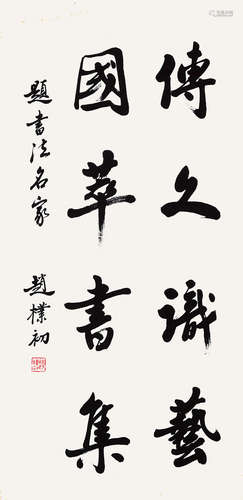 傳久識藝
國萃書集
題書法名家 趙樸初